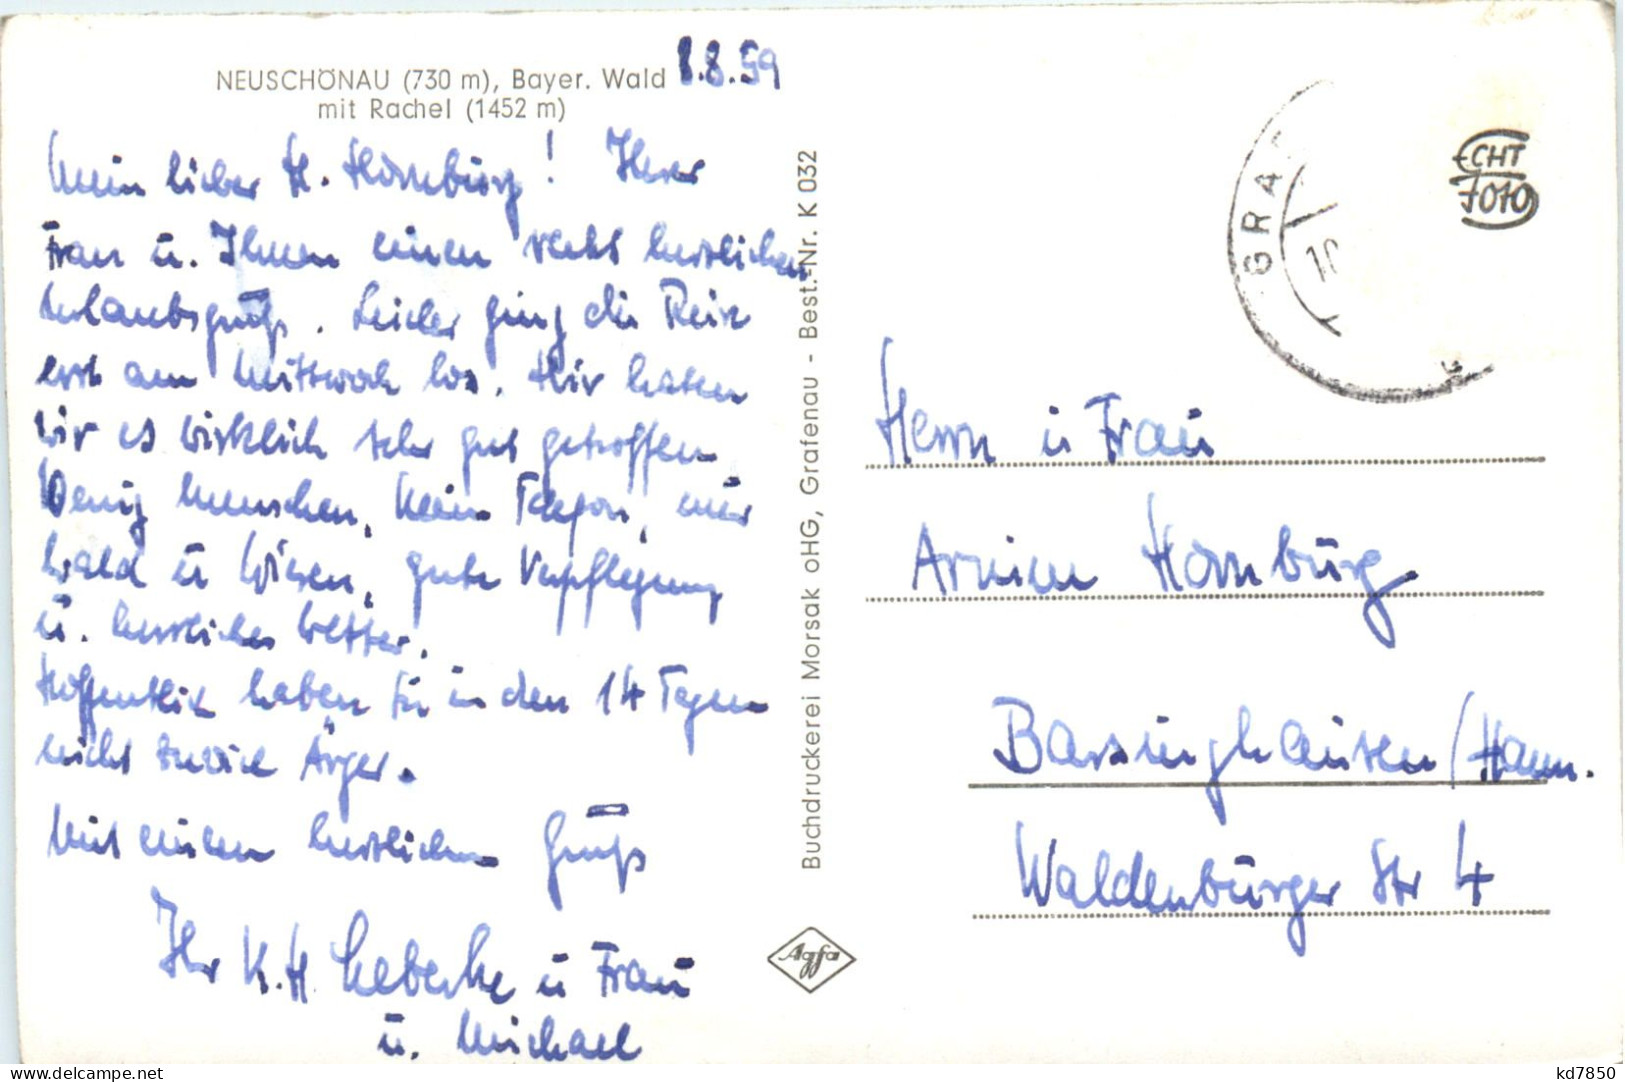 NEUSCHÖNAU (730 m), Bayer. Wald
mit Rachel (1452 m)
8.8.59
Mein lieber H. Hornburg! Ihrer
Frau u. Ihnen einen recht herzlichen
Urlaubsgruß. Leider ging die Reise
erst am Mittwoch los. Hier haben
wir es wirklich sehr gut getroffen
Wenig Menschen, kein Telefon, nur
Wald u Wiesen, gute Verpflegung
u. herrliches Wetter.
Hoffentlich haben Sie in den 14 Tagen
nicht zuviel Ärger.
Mit einem herzlichen Gruß
Ihr K.H. u Frau
u. Michael
Buchdruckerei Morsak oHG, Grafenau - Best.-Nr. K 032
Agfa
GRA
10
ECHT
FOTO
Herrn u Frau
Armin Hornburg
Barsinghausen/Hann.
Waldenburger Str 4
kd7850